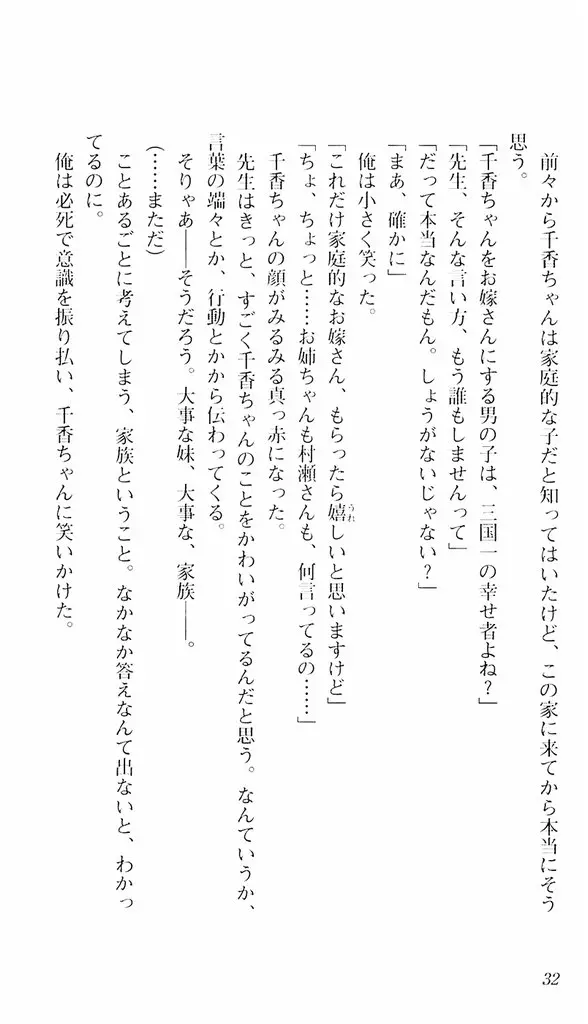 前々から千香ちゃんは家庭的な子だと知ってはいたけど、この家に来てから本当にそう
思う。
「千香ちゃんをお嫁さんにする男の子は、三国一の幸せ者よね？」
「先生、そんな言い方、もう誰もしませんって」
「だって本当なんだもん。しょうがないじゃない？」
「まあ、確かに」
俺は小さく笑った。
「これだけ家庭的なお嫁さん、もらったら嬉しいと思いますけど」
うれ
「ちょ、ちょっと……お姉ちゃんも村瀬さんも、何言ってるの……」
千香ちゃんの顔がみるみる真っ赤になった。
先生はきっと、すごく千香ちゃんのことをかわいがってるんだと思う。なんていうか、
言葉の端々とか、行動とかから伝わってくる。
そりゃあ――そうだろう。大事な妹、大事な、家族――。
(……まただ)
ことあるごとに考えてしまう、家族ということ。なかなか答えなんて出ないと、わかっ
てるのに。
俺は必死で意識を振り払い、千香ちゃんに笑いかけた。
32